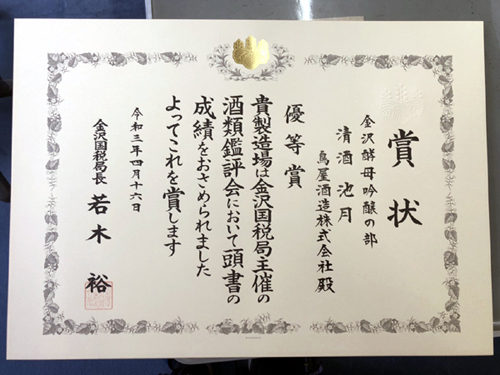 賞状
金沢酵母吟醸の部
清酒池月
鳥屋酒造株式会社殿
優等賞
貴製造場は金沢国税局主催の
酒類鑑評会において頭書の
成績をおさめられました
よってこれを賞します
令和三年四月十六日
金沢国税局長 若木裕